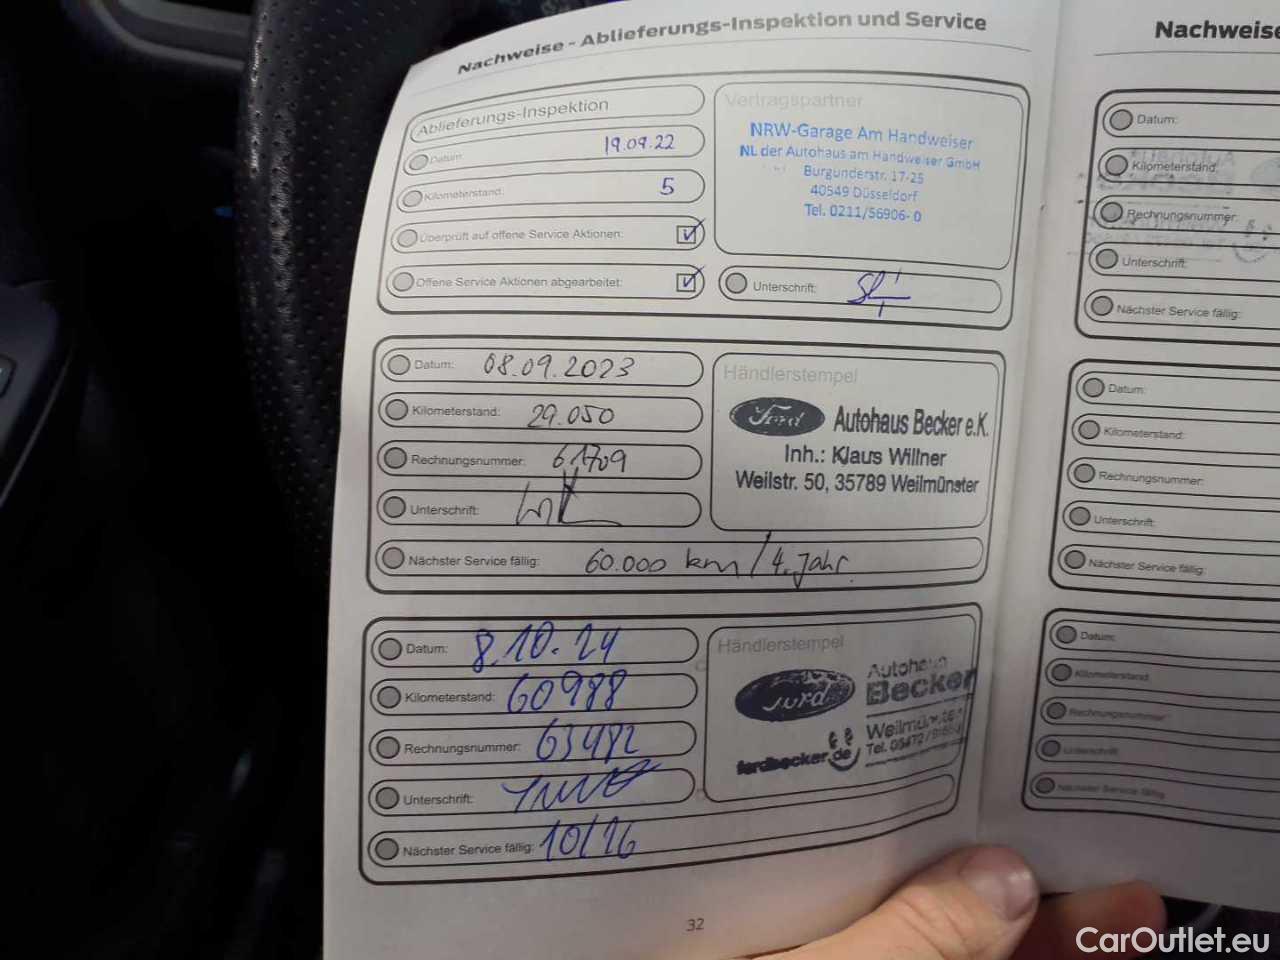 Nachweise - Ablieferungs-Inspektion und Service
Ablieferungs-Inspektion
Datum: 19.09.22
Kilometerstand: 5
Überprüft auf offene Service Aktionen:
Offene Service Aktionen abgearbeitet:
Vertragspartner
NRW-Garage Am Handweiser
NL der Autohaus am Handweiser GmbH
Burgunderstr. 17-25
40549 Düsseldorf
Tel. 0211/56906-0
Unterschrift:
Datum: 08.09.2023
Kilometerstand: 29.050
Rechnungsnummer: 61709
Unterschrift:
Nächster Service fällig: 60.000 km / 4. Jahr
Händlerstempel
Ford Autohaus Becker e.K.
Inh.: Klaus Willner
Weilstr. 50, 35789 Weilmünster
Datum: 8.10.24
Kilometerstand: 60988
Rechnungsnummer: 63482
Unterschrift:
Nächster Service fällig: 10/26
Händlerstempel
Ford
Autohaus
Becker
fordbecker.de
32
Nachweise
Datum:
Kilometerstand:
Rechnungsnummer:
Unterschrift:
Nächster Service fällig:
Datum:
Kilometerstand:
Rechnungsnummer:
Unterschrift:
Nächster Service fällig:
Datum:
Kilometerstand:
Rechnungsnummer:
Unterschrift:
Nächster Service fällig:
CarOutlet.eu